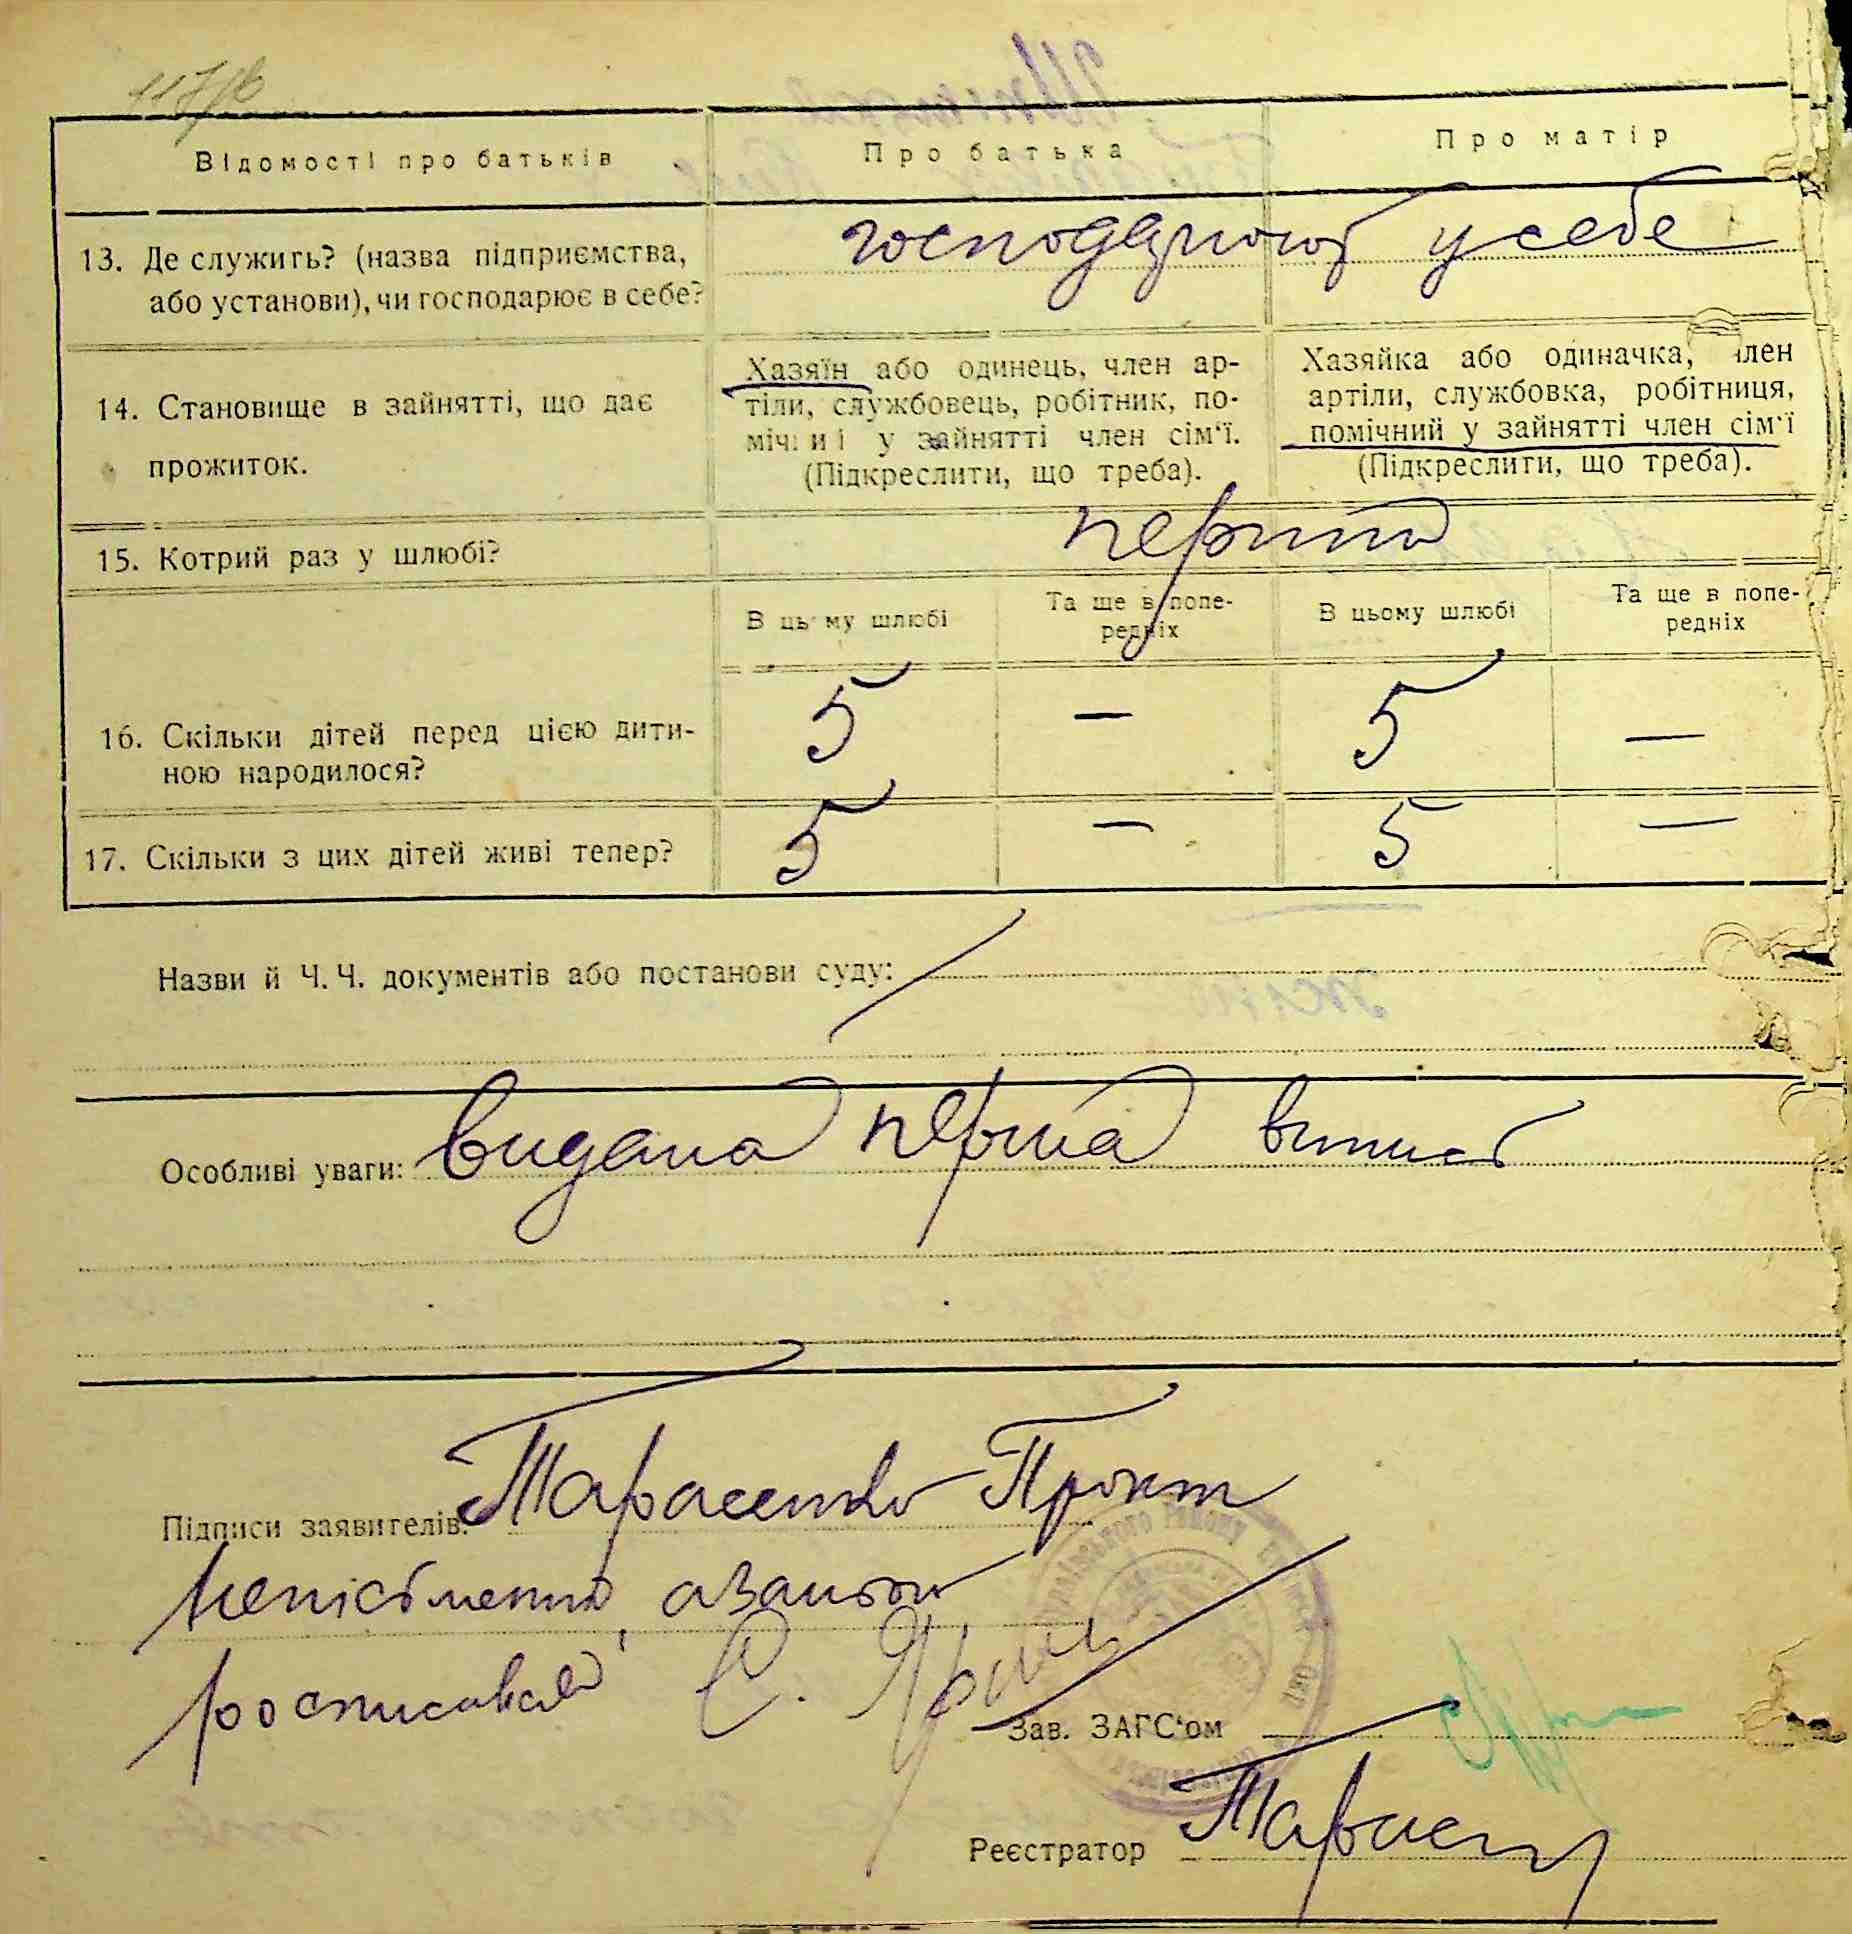 117/6
Відомості про батьків
Про батька
Про матір
13. Де служить? (назва підприємства,
або установи), чи господарює в себе?
господарюют у себе
14. Становище в зайнятті, що дає
прожиток.
Хазяїн або одинець, член ар-
тіли, службовець, робітник, по-
міч и і у зайнятті член сім'ї.
(Підкреслити, що треба).
Хазяйка або одиначка, член
артіли, службовка, робітниця,
помічний у зайнятті член сім'ї
(Підкреслити, що треба).
15. Котрий раз у шлюбі?
перший
В цьму шлюбі
Та ще в попе-
редніх
В цьому шлюбі
Та ще в попе-
редніх
16. Скільки дітей перед цією дити-
ною народилося?
5 — 5 —
17. Скільки з цих дітей живі тепер?
5 — 5 —
Назви й Ч. Ч. документів або постанови суду:
Особливі уваги: видана перша випись
Підписи заявителів: Тарасенко Прокт
неписьмений, а за него
росписався
Зав. ЗАГС'ом
Реєстратор Тарасен